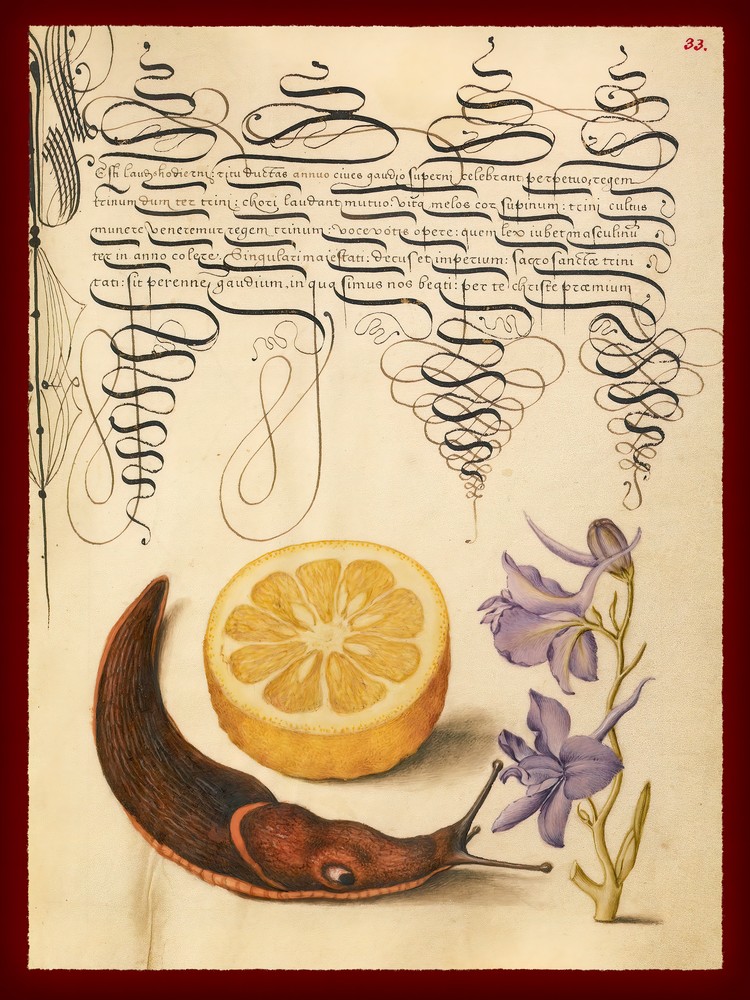 33.
Est laudis hodierni: ritu ductas annuo cives gaudio superni celebrant perpetuo, regem
trinum dum ter trini: chori laudant mutuo vita melos cor supinum: trini cultus
munere Veneremur regem trinum: voce votis opere: quem lex iubet masculinū
ter in anno colere. Singulari maiestati: decus et imperium: sacrosanctæ trini
tati: sit perenne gaudium, in qua simus nos beati: per te christe præmium